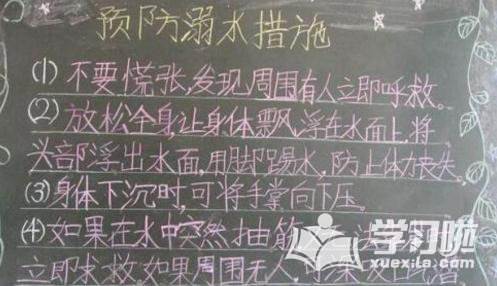 预防溺水措施
(1) 不要慌张,发现周围有人立即呼救。
(2) 放松全身,让身体飘浮在水面上,将
头部浮出水面,用脚踢水,防止体力丧失。
(3) 身体下沉时,可将手掌向下压。
(4) 如果在水中突然抽筋
立即求救如果周围无人
学习啦
xuexila.com